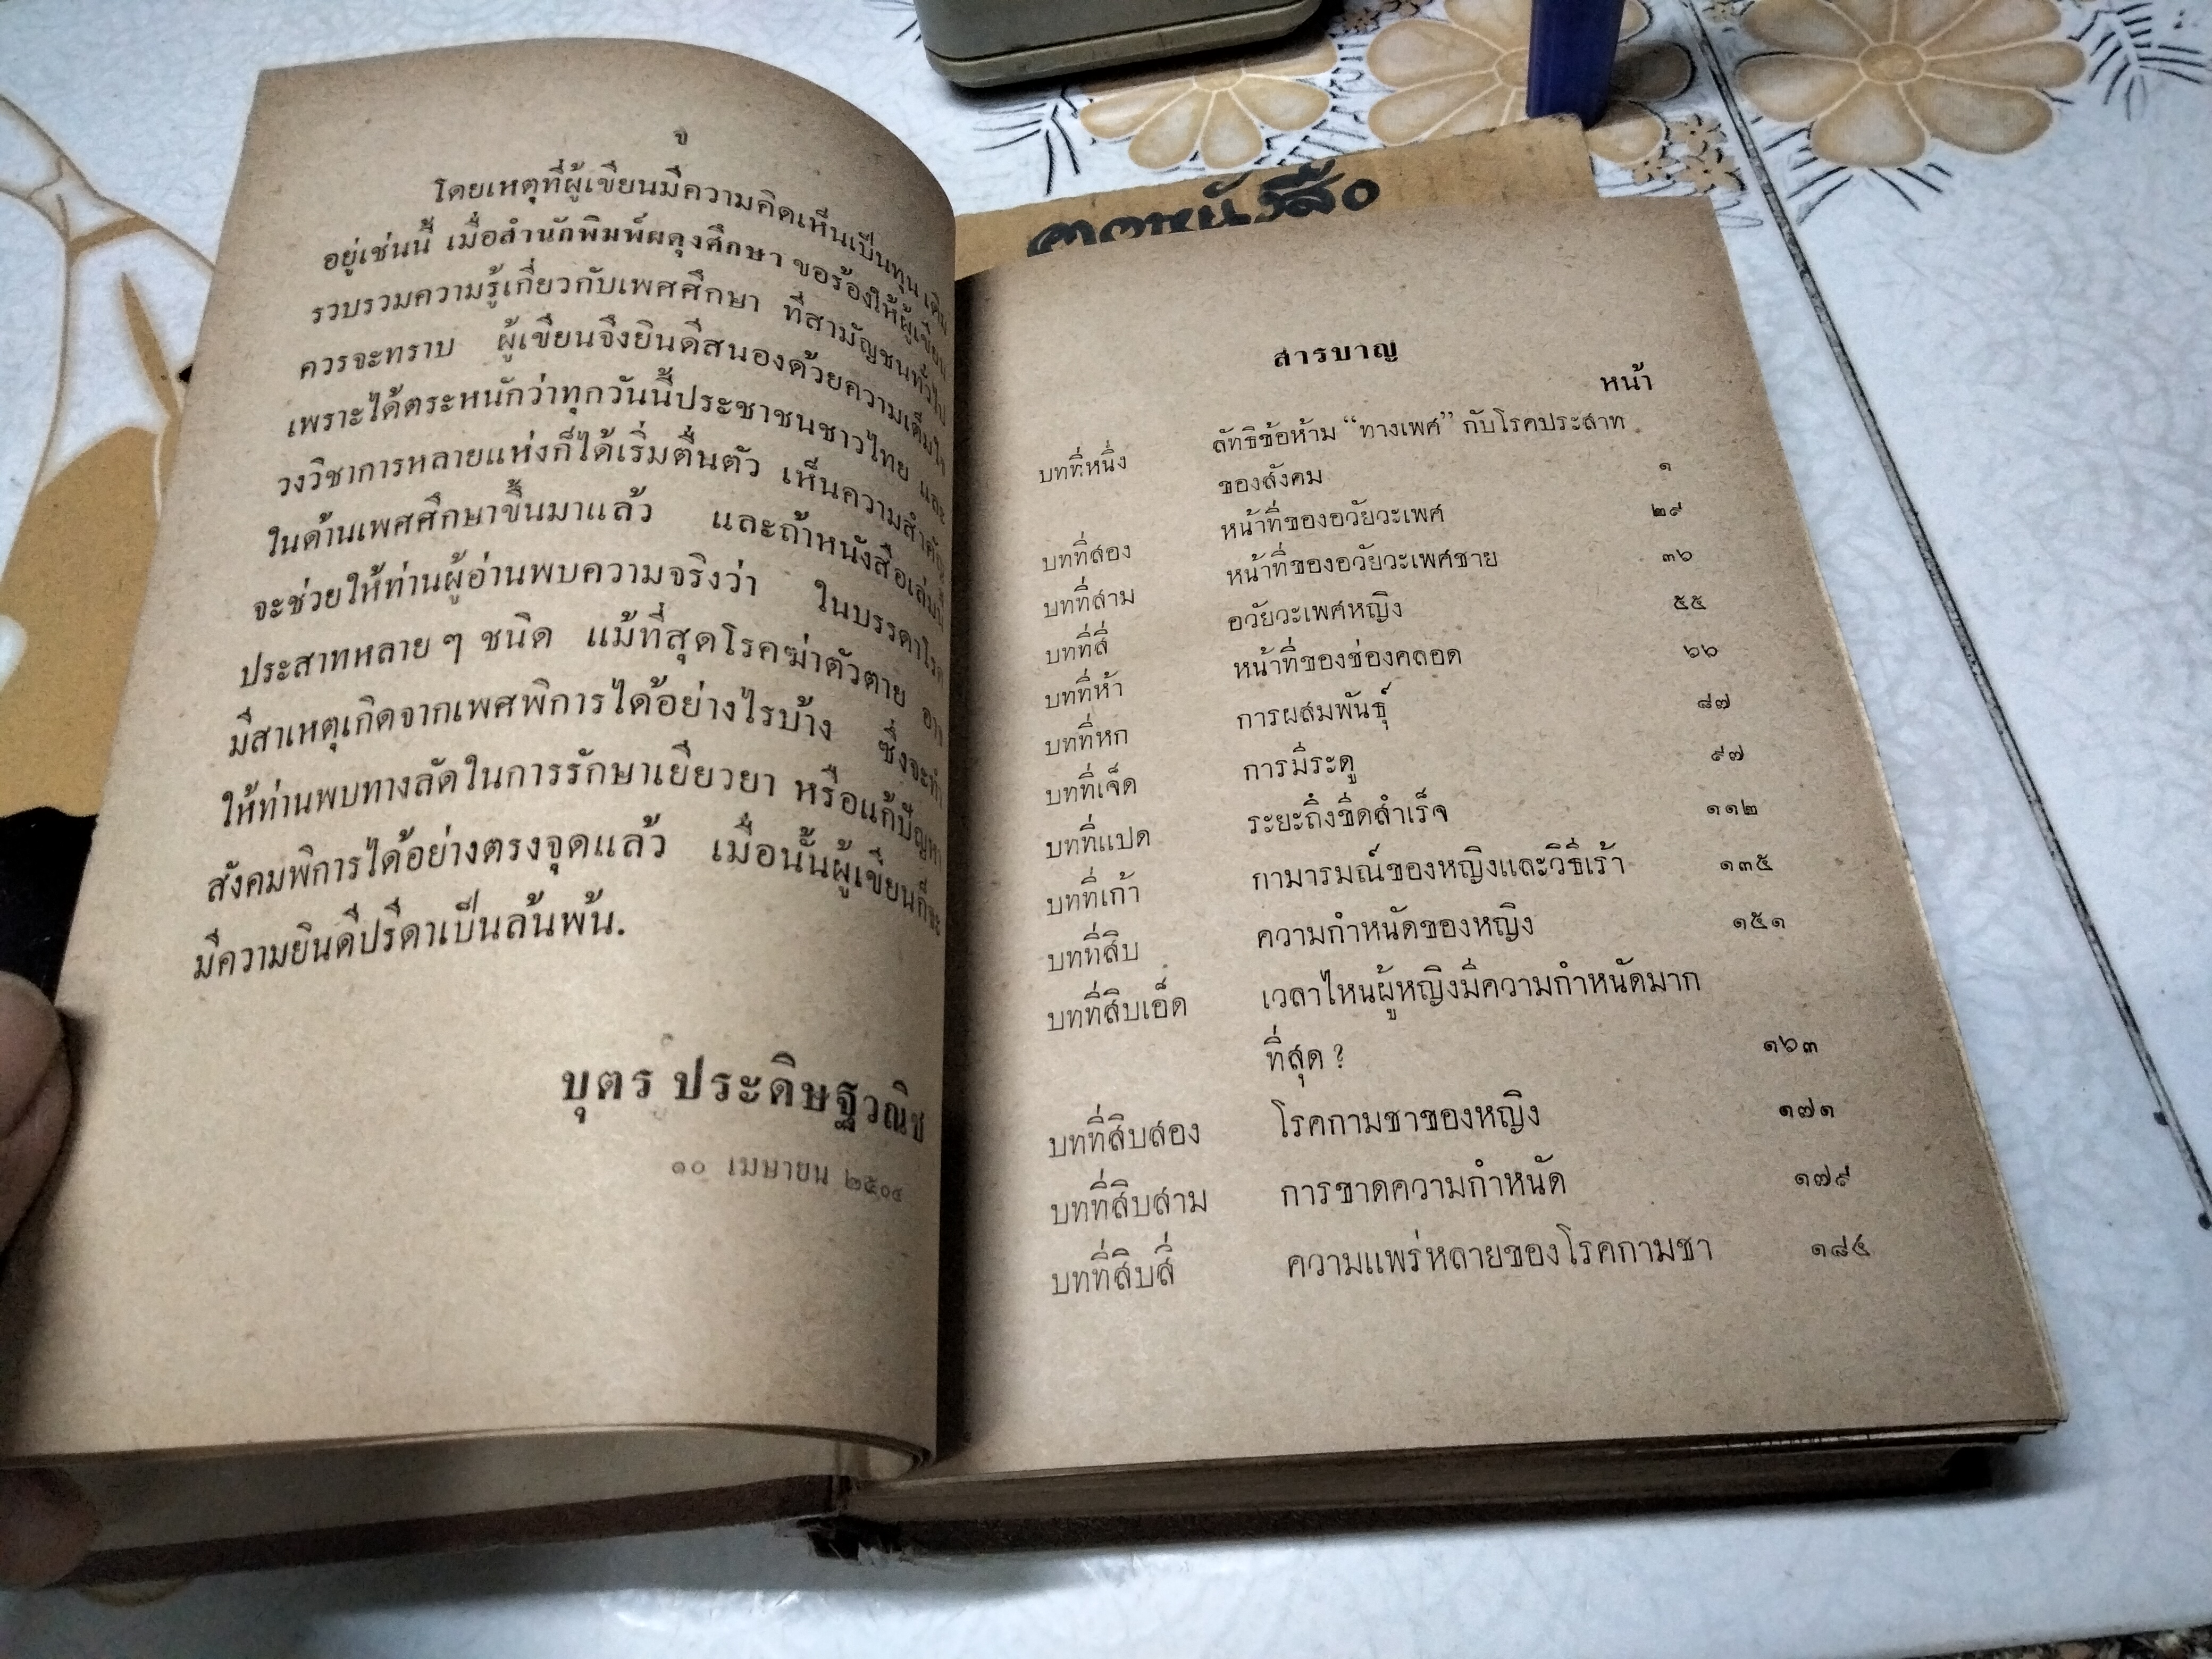 จ
โดยเหตุที่ผู้เขียนมีความคิดเห็นเป็นทุนเดิม
อยู่เช่นนี้ เมื่อสำนักพิมพ์ผดุงศึกษา ขอร้องให้ผู้เขียน
รวบรวมความรู้เกี่ยวกับเพศศึกษา ที่สามัญชนทั่วไป
ควรจะทราบ ผู้เขียนจึงยินดีสนองด้วยความเต็มใจ
เพราะได้ตระหนักว่าทุกวันนี้ประชาชนชาวไทย และ
วงวิชาการหลายแห่งก็ได้เริ่มตื่นตัว เห็นความสำคัญ
ในด้านเพศศึกษาขึ้นมาแล้ว และถ้าหนังสือเล่มนี้
จะช่วยให้ท่านผู้อ่านพบความจริงว่า ในบรรดาโรค
ประสาทหลาย ๆ ชนิด แม้ที่สุดโรคฆ่าตัวตาย อาจ
มีสาเหตุเกิดจากเพศพิการได้อย่างไรบ้าง ซึ่งจะทำ
ให้ท่านพบทางลัดในการรักษาเยียวยา หรือแก้ปัญหา
สังคมพิการได้อย่างตรงจุดแล้ว เมื่อนั้นผู้เขียนก็จะ
มีความยินดีปรีดาเป็นล้นพ้น.
บุตร ประดิษฐวณิช
๑๐ เมษายน ๒๕๐๔
สารบาญ
หน้า
บทที่หนึ่ง ลัทธิข้อห้าม “ทางเพศ” กับโรคประสาท
ของสังคม ๑
บทที่สอง หน้าที่ของอวัยวะเพศ ๒๙
บทที่สาม หน้าที่ของอวัยวะเพศชาย ๓๖
บทที่สี่ อวัยวะเพศหญิง ๕๕
บทที่ห้า หน้าที่ของช่องคลอด ๖๖
บทที่หก การผสมพันธุ์ ๘๗
บทที่เจ็ด การมีระดู ๙๗
บทที่แปด ระยะถึงขีดสำเร็จ ๑๑๒
บทที่เก้า กามารมณ์ของหญิงและวิธีเร้า ๑๓๕
บทที่สิบ ความกำหนัดของหญิง ๑๕๑
บทที่สิบเอ็ด เวลาไหนผู้หญิงมีความกำหนัดมาก
ที่สุด ? ๑๖๓
บทที่สิบสอง โรคกามชาของหญิง ๑๗๑
บทที่สิบสาม การขาดความกำหนัด ๑๗๙
บทที่สิบสี่ ความแพร่หลายของโรคกามชา